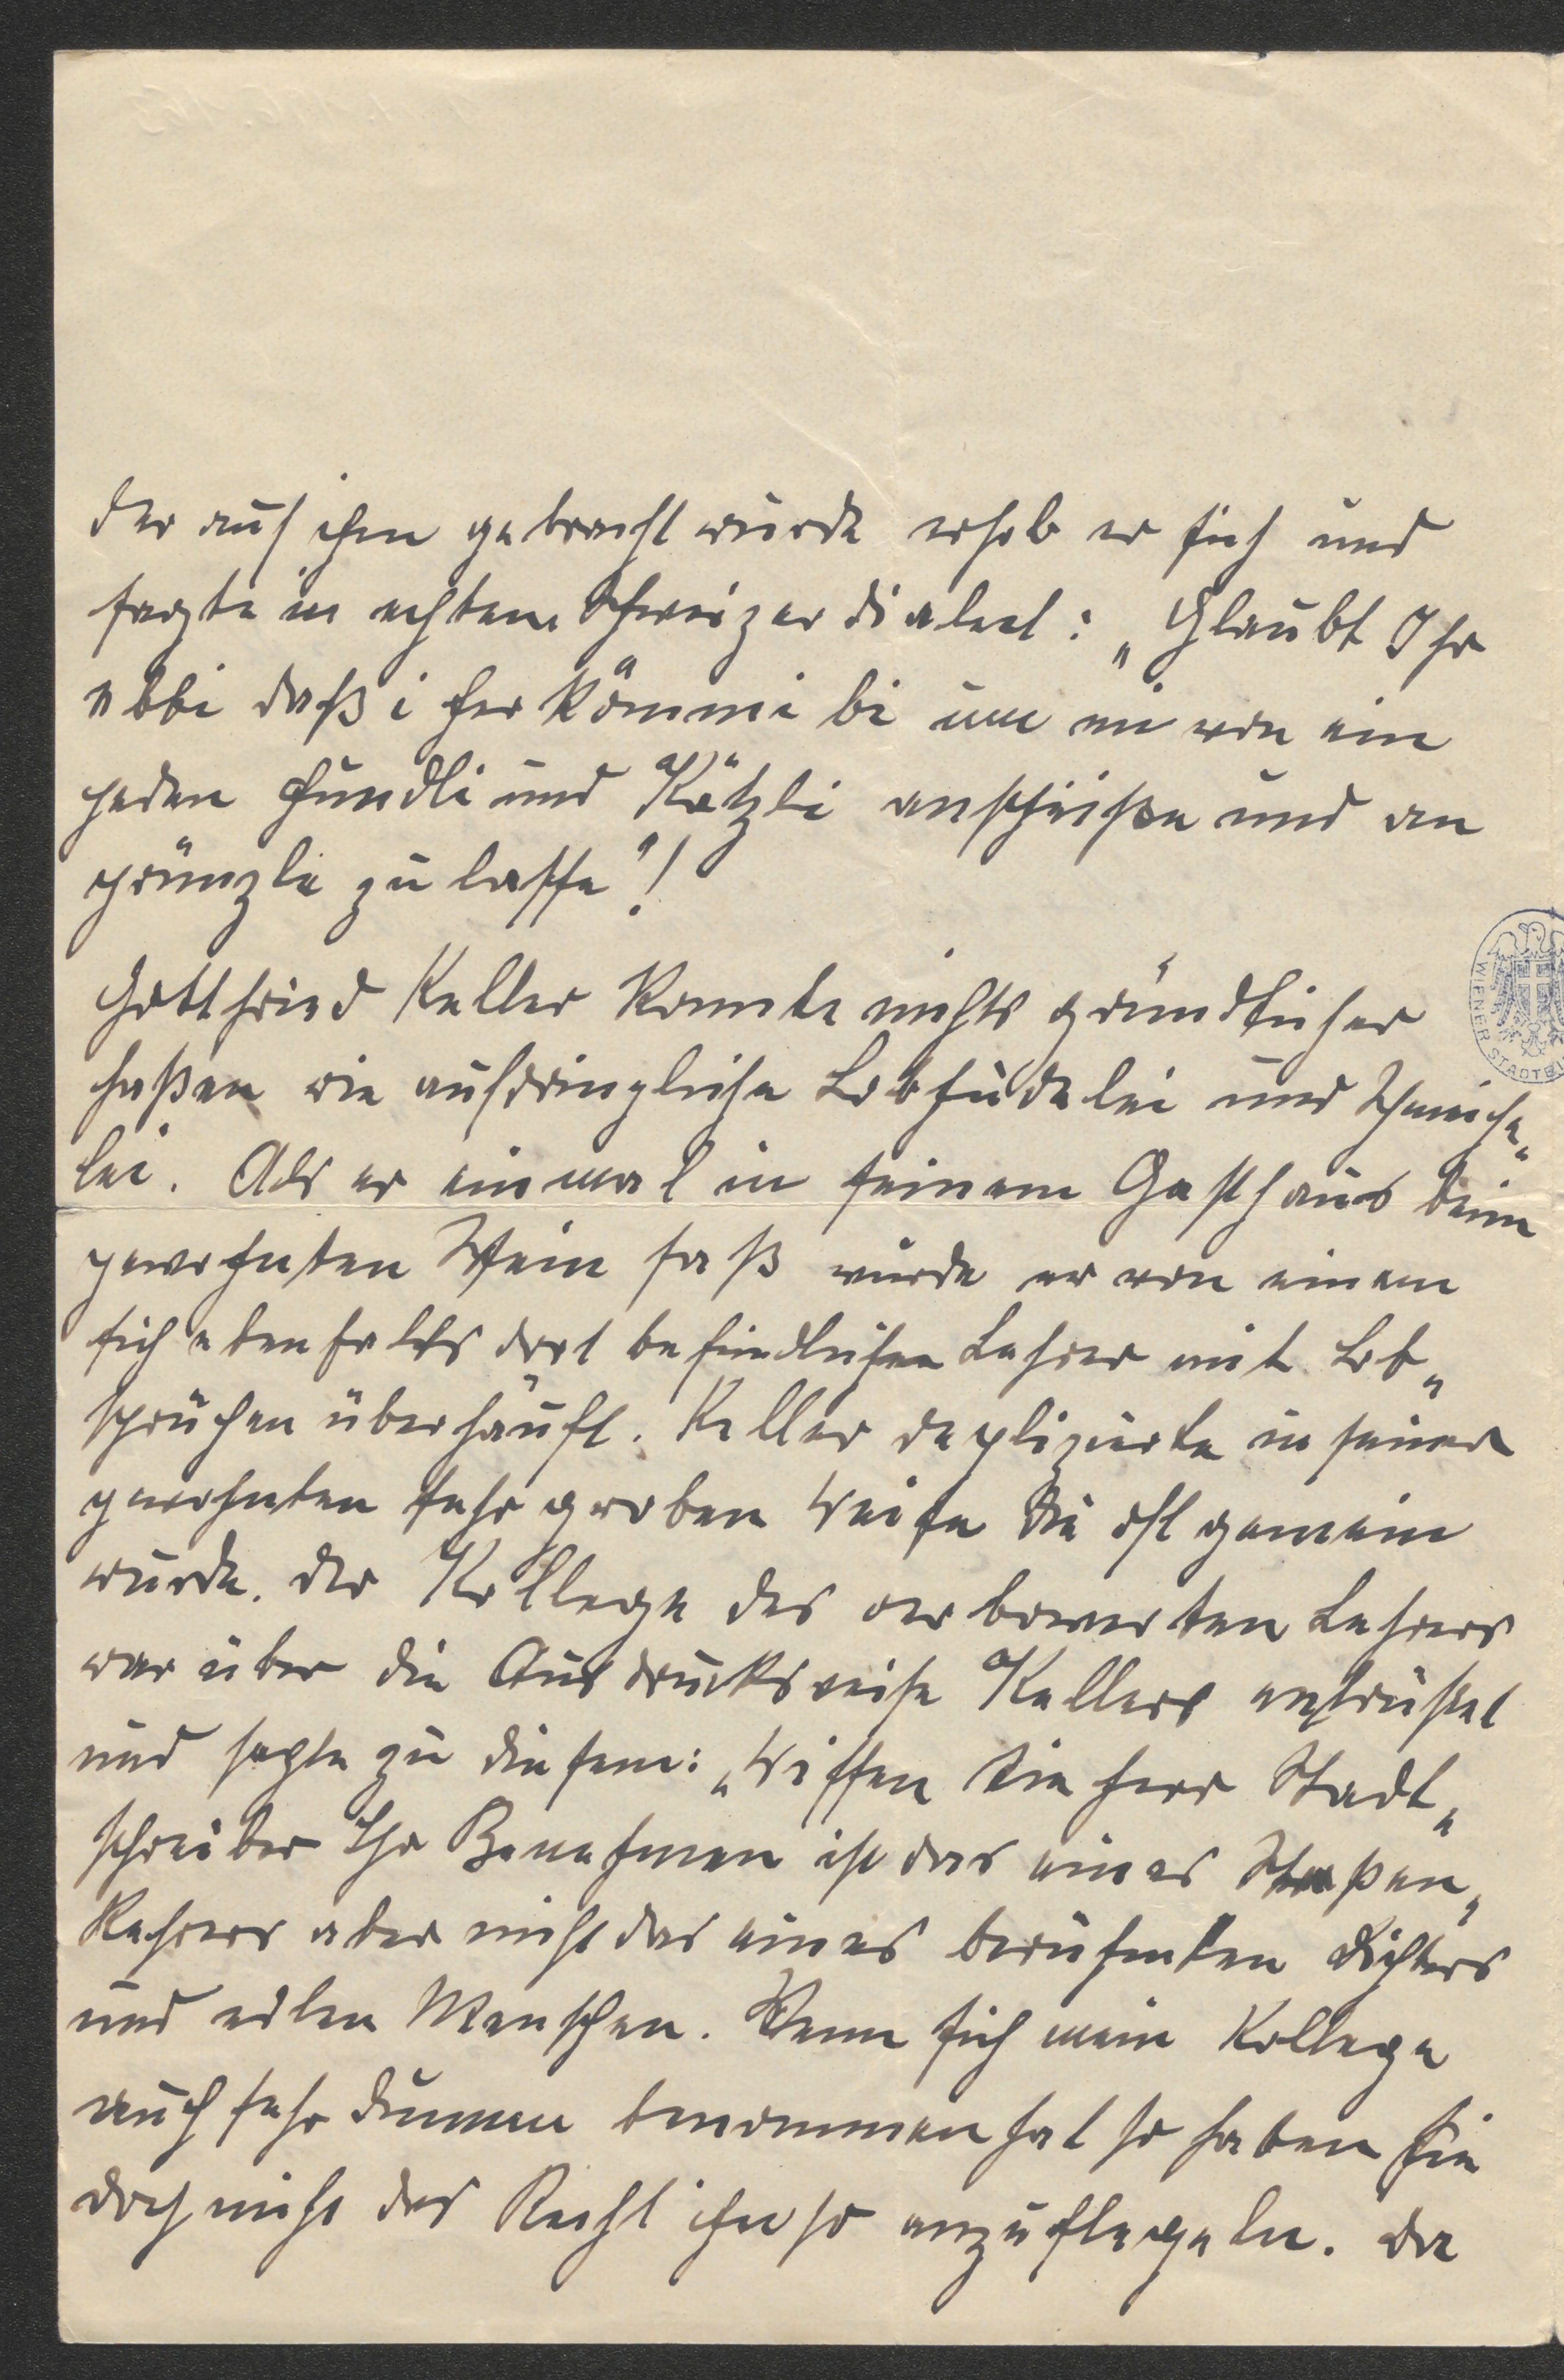 der auf ihn gebracht wurde erhob er sich und
sagte in echtem Schweizerdialect: „Glaubt Ihr
öbbi daß i herkömmi bi um mi von ein
jeden Hündli und Kätzli anscheiße und an
prünzle zu lasse"!
Gottfried Keller konnte nichts gründlicher
haßen wie aufdringliche Lobhudelei und Schmeiche„
lei. Als er einmal in seinem Gasthaus beim
gewohnten Wein saß wurde er von einem
sich ebenfalls dort befindlichen Lehrer mit Lob„
sprüchen überhäuft. Keller replizierte in seiner
gewohnten sehr groben Weise die oft gemein
wurde. Der Kollege des verbowerten Lehrers
war über die Ausdrucksweise Kellers entrüstet
und sagte zu diesem: „Wissen Sie Herr Stadt„
schreiber Ihr Benehmen ist das eines Straßen„
kehrers aber nicht das eines berühmten Dichters
und edlen Menschen. Wenn sich mein Kollege
auch sehr dumm benommen hat so haben Sie
doch nicht das Recht ihn so anzuflegeln. Da
WIENER STADTBI